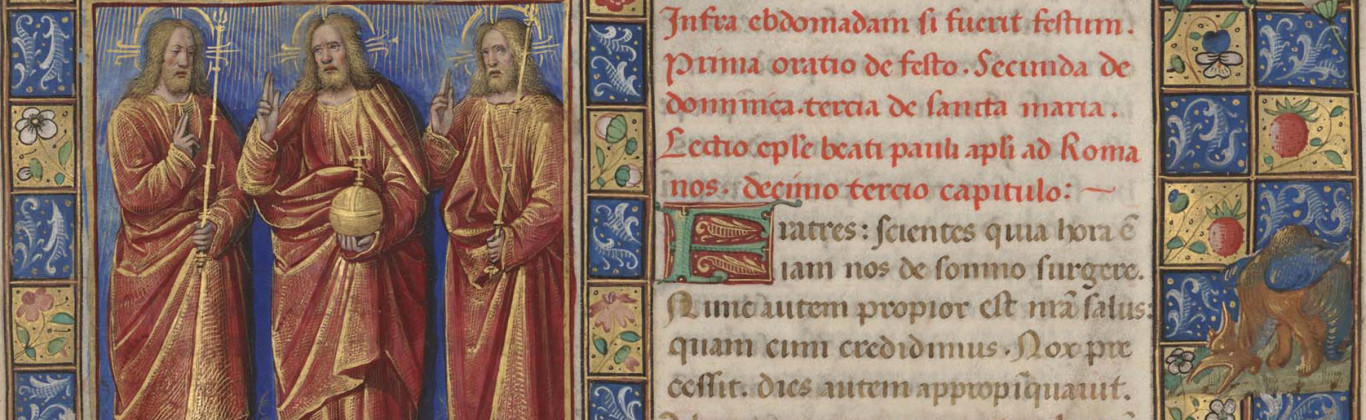 Infra ebdomadam si fuerit festum.
Prima oratio de festo. Secunda de
dominica. tercia de sancta maria.
Lectio eple beati pauli apli ad Roma
nos. decimo tercio capitulo:
Fratres: scientes quia hora ē
iam nos de somno surgere.
Nunc autem propior est nrā salus:
quam cum credidimus. Nox pre
cessit. dies autem appropīquauit.